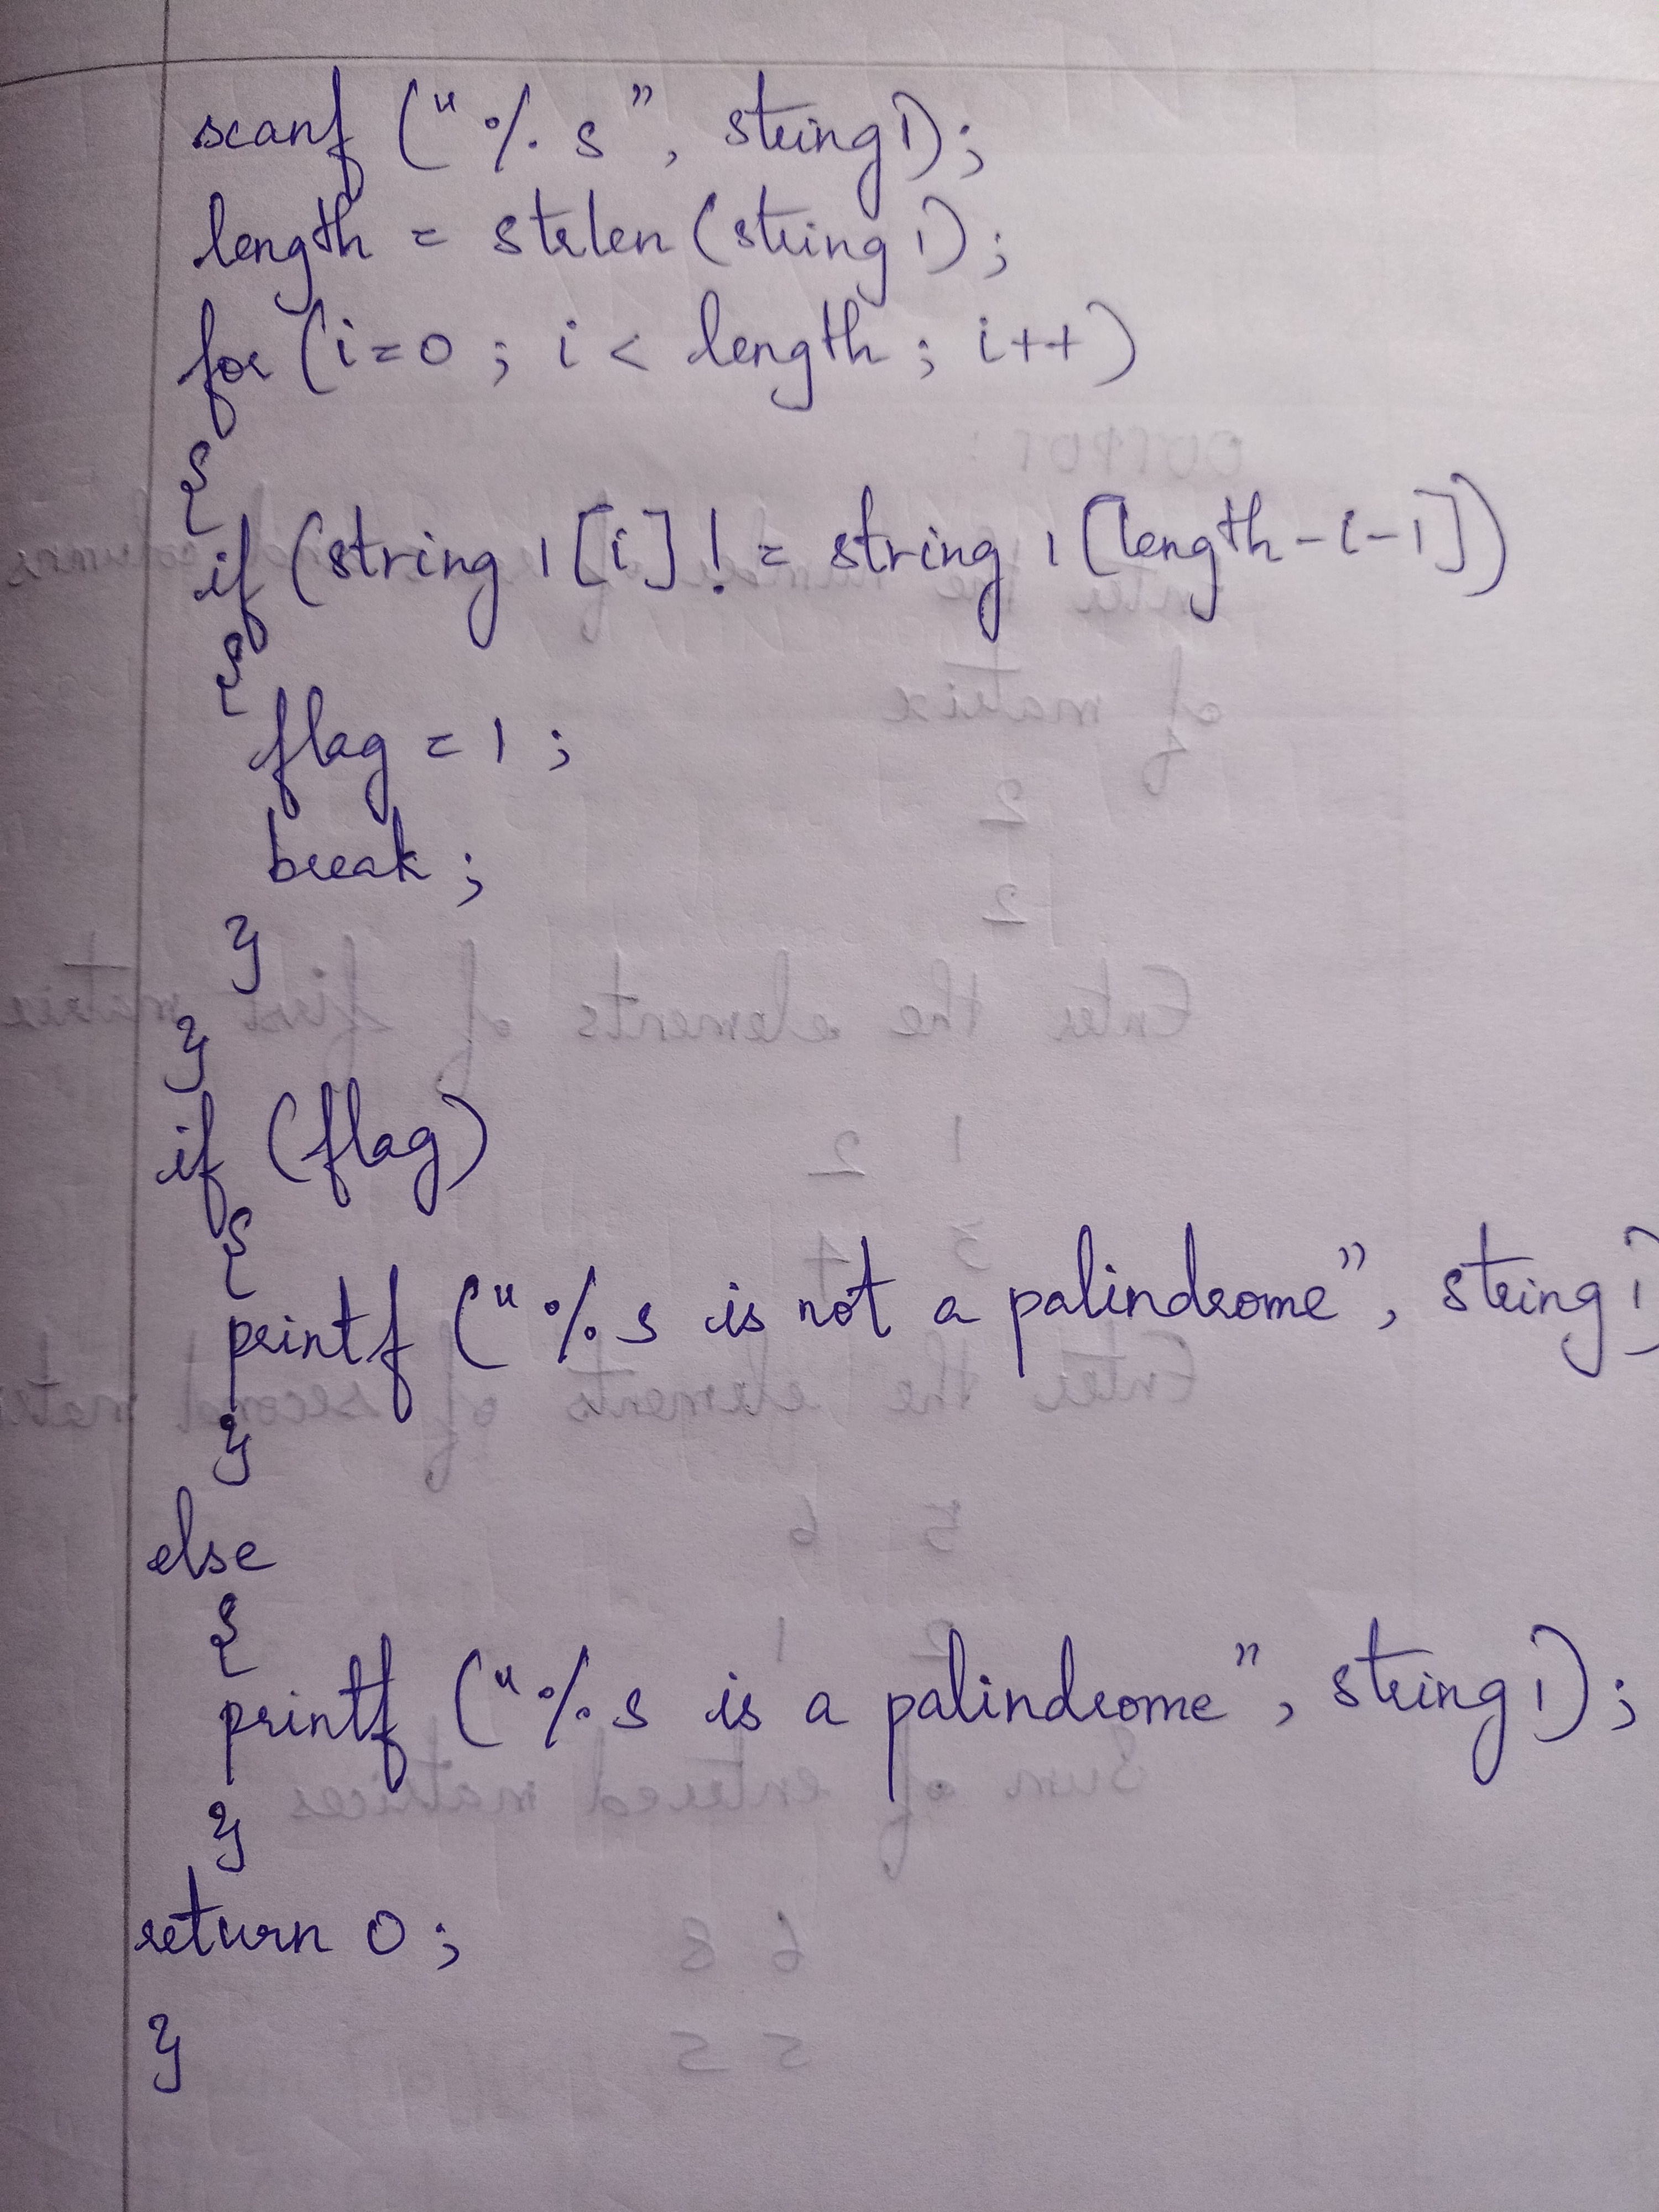 scanf ("%s", string1);
length = strlen(string1);
for (i=0; i < length; i++)
{
if (string1[i] != string1[length-i-1])
{
flag = 1;
break;
}
}
if (flag)
{
printf ("%s is not a palindrome", string1)
}
else
{
printf ("%s is a palindrome", string1);
}
return 0;
}